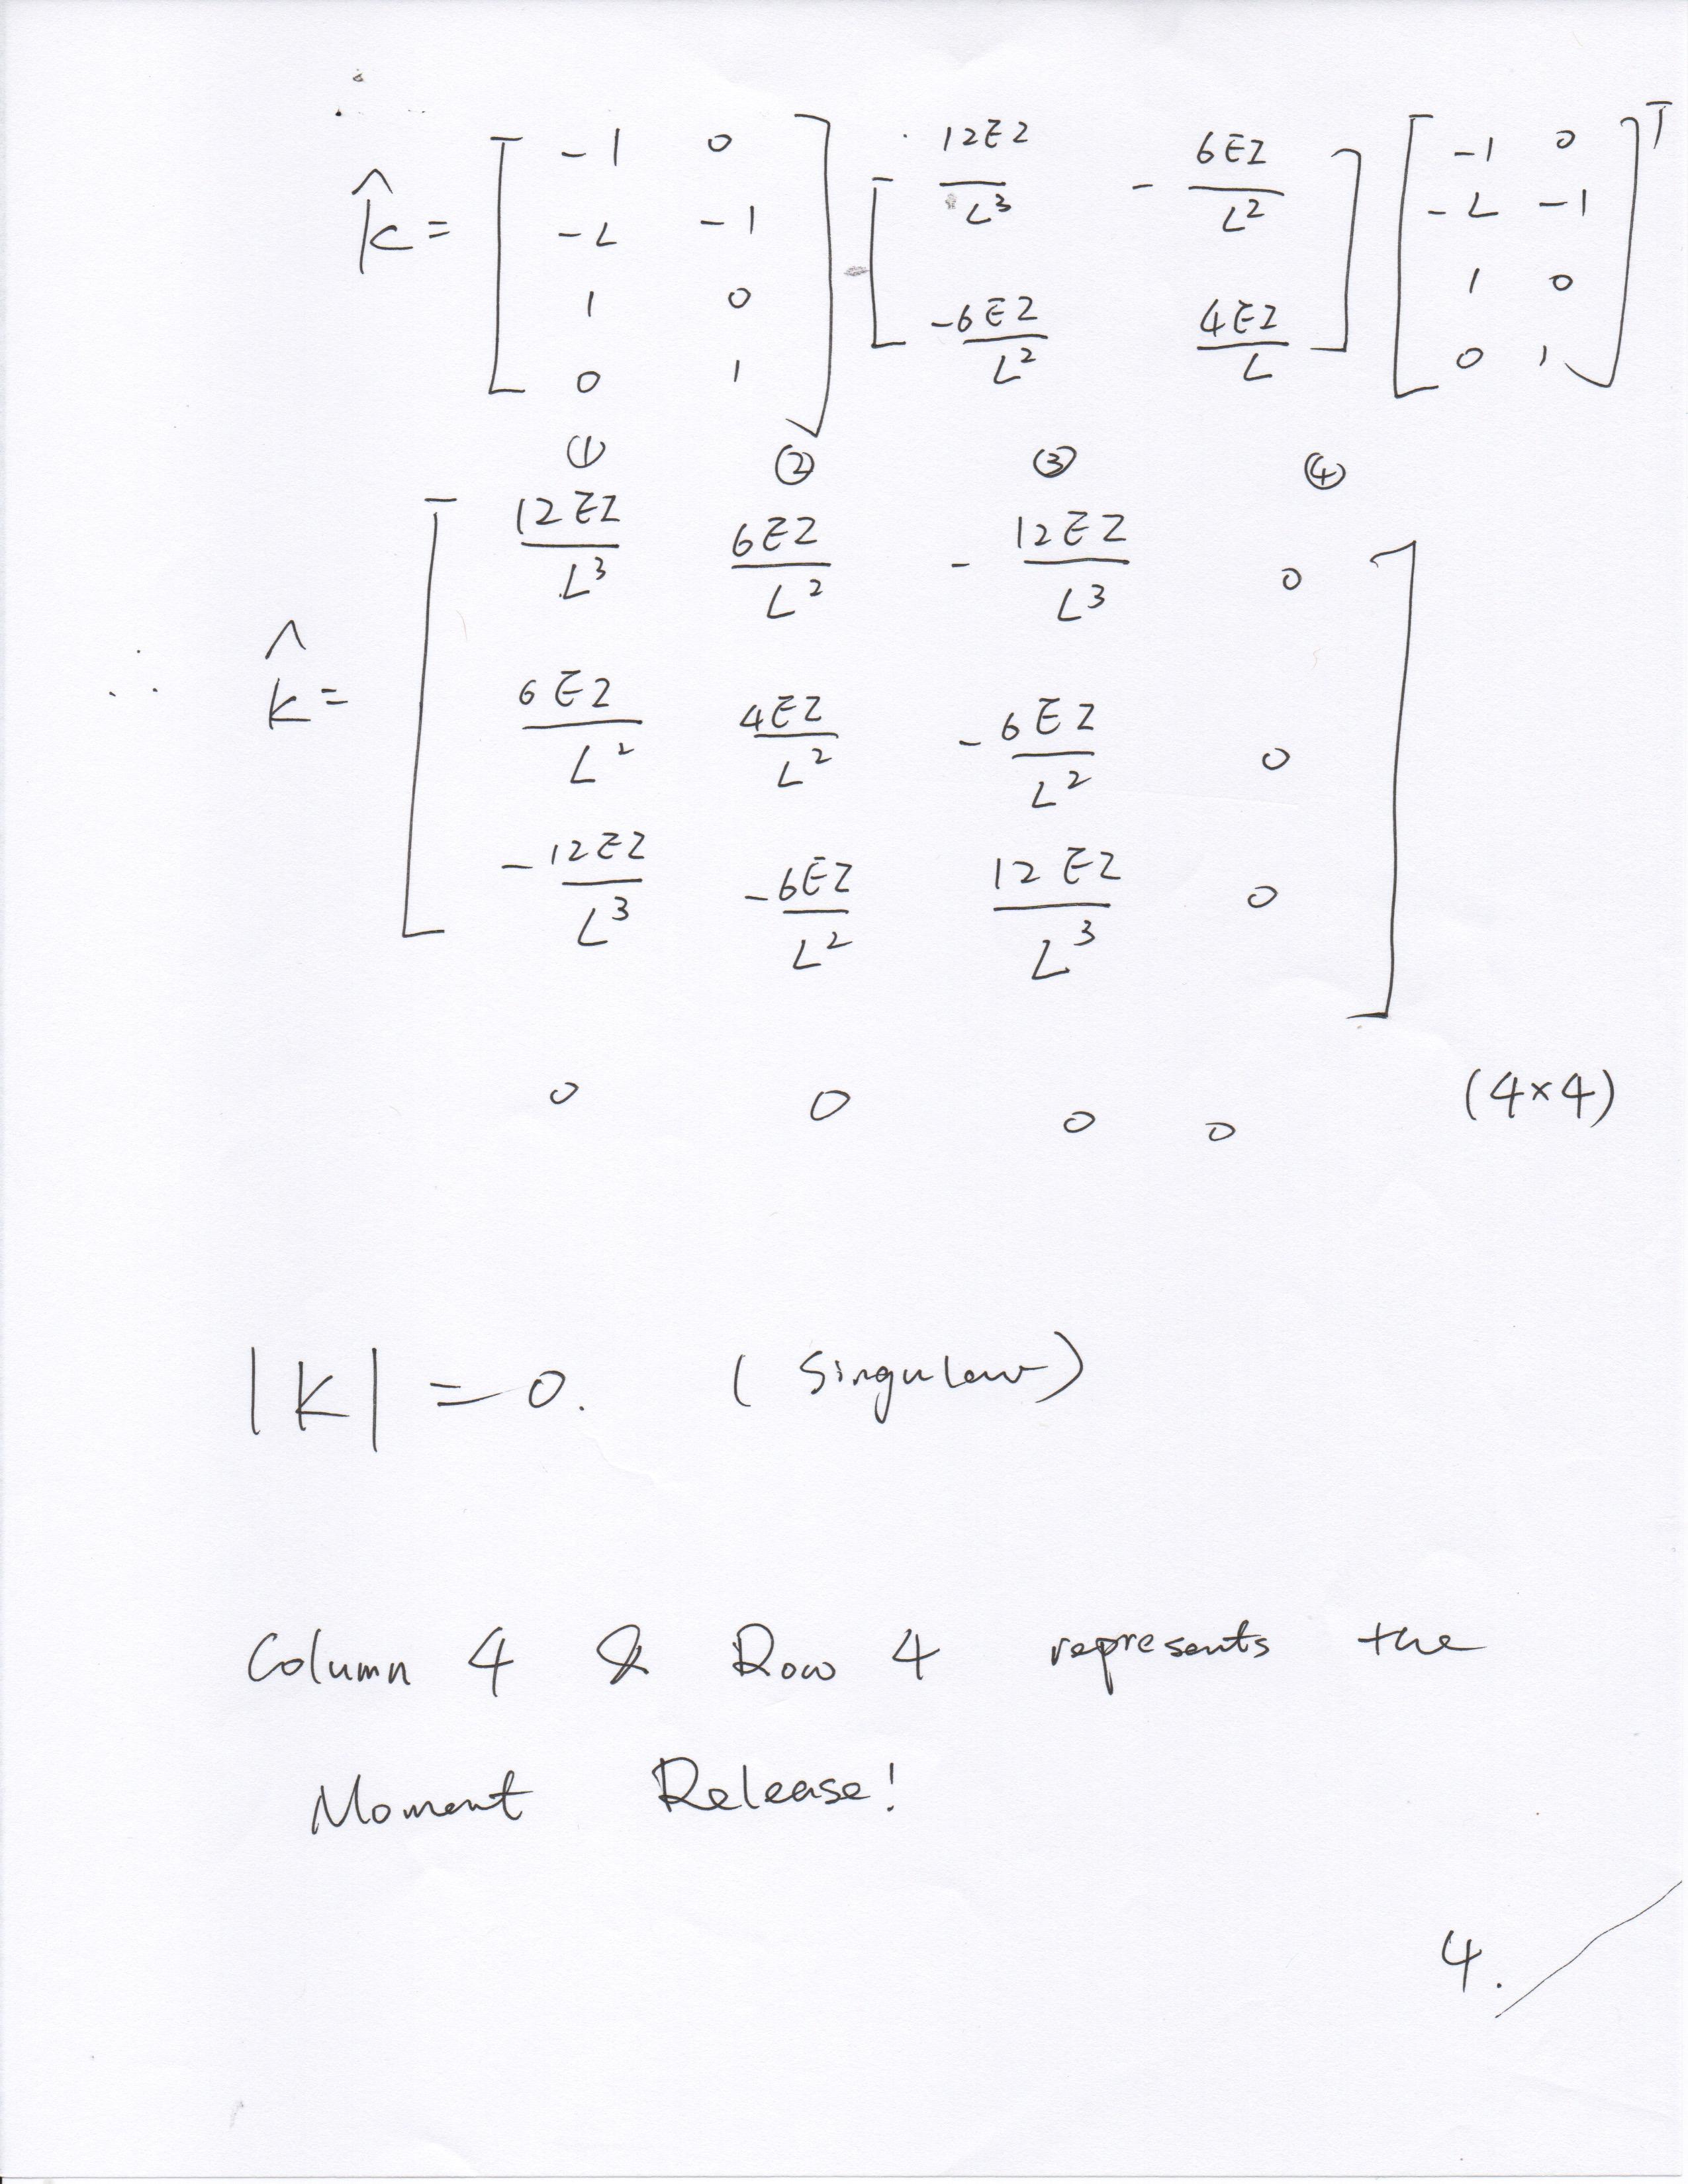 k̂ = [ -1 0 ; -L -1 ; 1 0 ; 0 1 ] [ 12EI/L³ - 6EI/L² ; -6EI/L² 4EI/L ] [ -1 0 ; -L -1 ; 1 0 ; 0 1 ]ᵀ
① ② ③ ④
12EI/L³ 6EI/L² - 12EI/L³ 0
∴ k̂ = 6EI/L² 4EI/L² - 6EI/L² 0
-12EI/L³ -6EI/L² 12EI/L³ 0
0 0 0 0 (4×4)
|K| = 0. (Singular)
Column 4 & Row 4 represents the
Moment Release!
4.